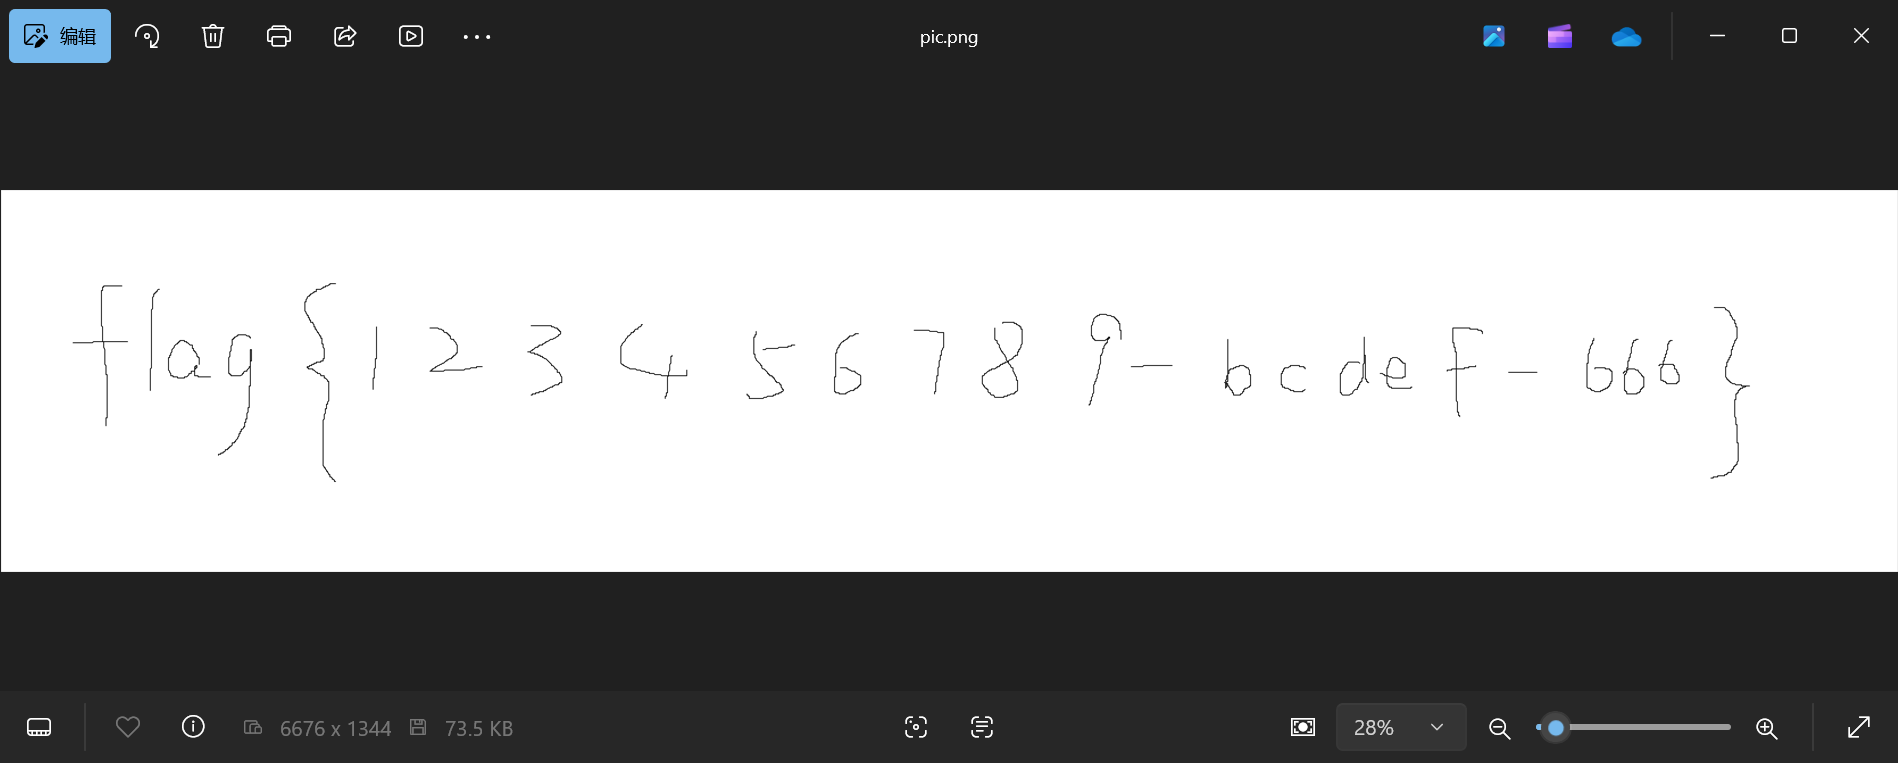 编辑
pic.png
flag{123456789-bcdef-666}
6676 x 1344
73.5 KB
28%